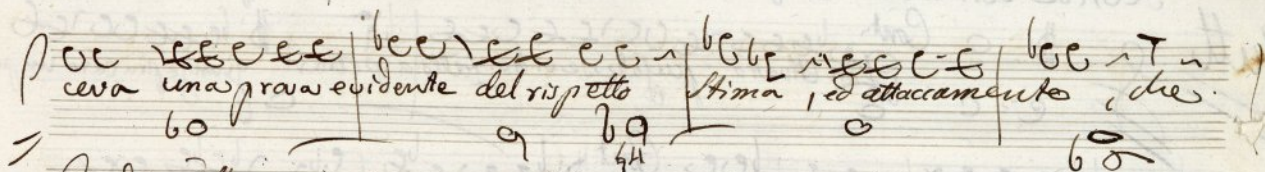 ceva una prova evidente del rispetto Stima, ed attaccamento, che